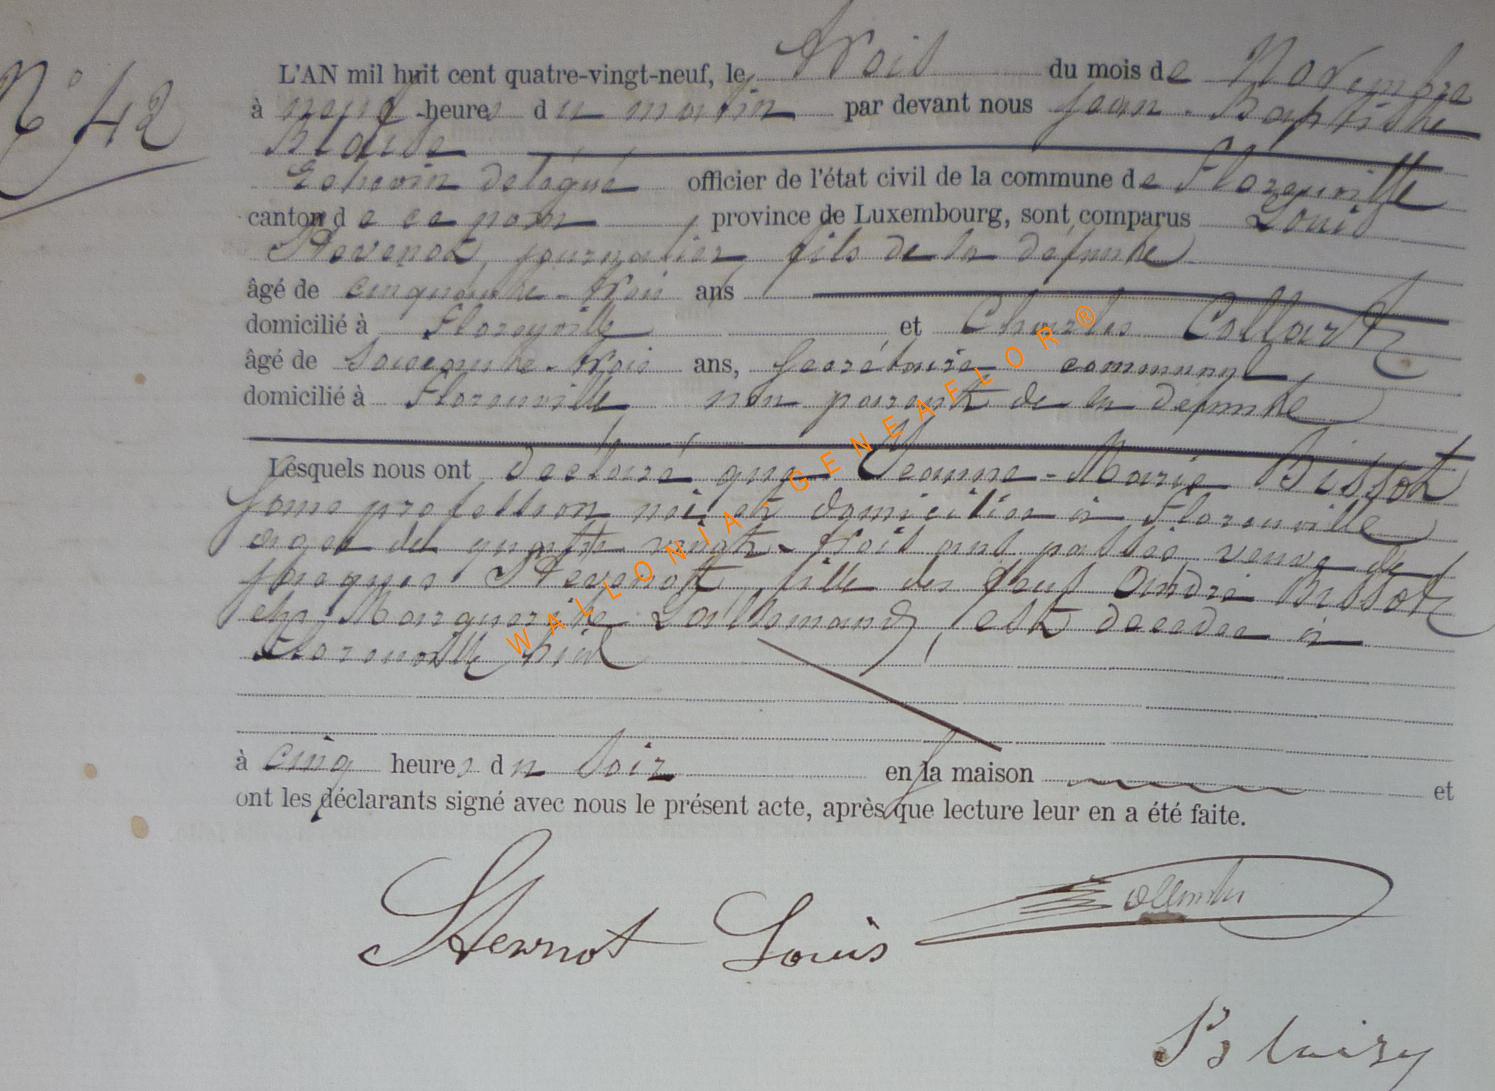 N° 42
L'AN mil huit cent quatre-vingt-neuf, le trois du mois de Novembre
à neuf heures du matin par devant nous Jean-Baptiste
Blaise
Echevin délégué officier de l'état civil de la commune de Florenville
canton de ce nom province de Luxembourg, sont comparus Louis
Stevenot, journalier, fils de la défunte
âgé de cinquante-trois ans
domicilié à Florenville et Charles Collart
âgé de soixante-trois ans, secrétaire communal,
domicilié à Florenville non parent de la défunte
Lesquels nous ont déclaré que Jeanne-Marie Bissot
sans profession née et domiciliée à Florenville
agée de quatre vingt-trois ans passés veuve de
Jacques Stevenot, fille des feus André Bissot
et Marguerite Lallemand, est décédée à
Florenville hier
à cinq heures du soir en la maison et
ont les déclarants signé avec nous le présent acte, après que lecture leur en a été faite.
Stevenot Louis
WALLONIA-GENEAFLOR®